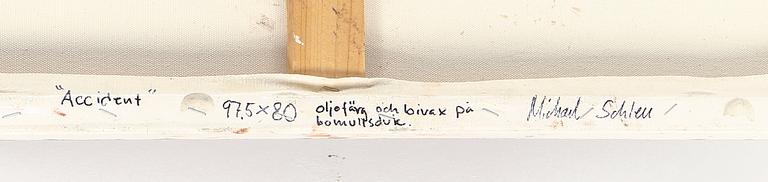 "Accident" 97,5×80 oljefärg och bivax på Michael
bomullsduk.